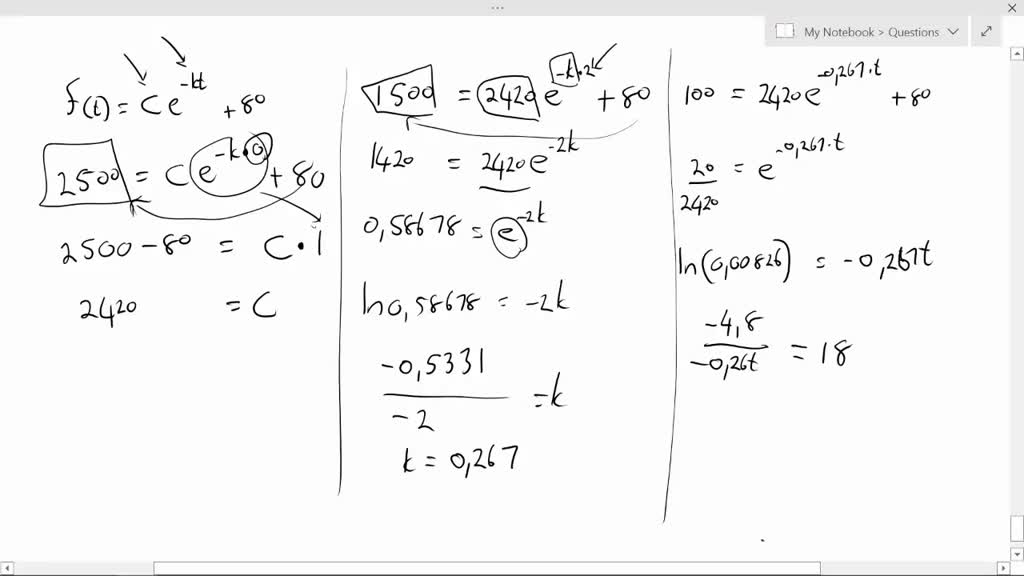 My Notebook > Questions
f(t) = Ce^-kt + 80
2500 = Ce^-k·0 + 80
2500 - 80 = C·1
2420 = C
1500 = 2420e^-k·2 + 80
1420 = 2420e^-2k
0,58678 = e^-2k
ln 0,58678 = -2k
-0,5331
-2
= k
k = 0,267
100 = 2420e^-0,267·t + 80
20
2420
= e^-0,267·t
ln(0,00826) = -0,267t
-4,8
-0,26t
= 18